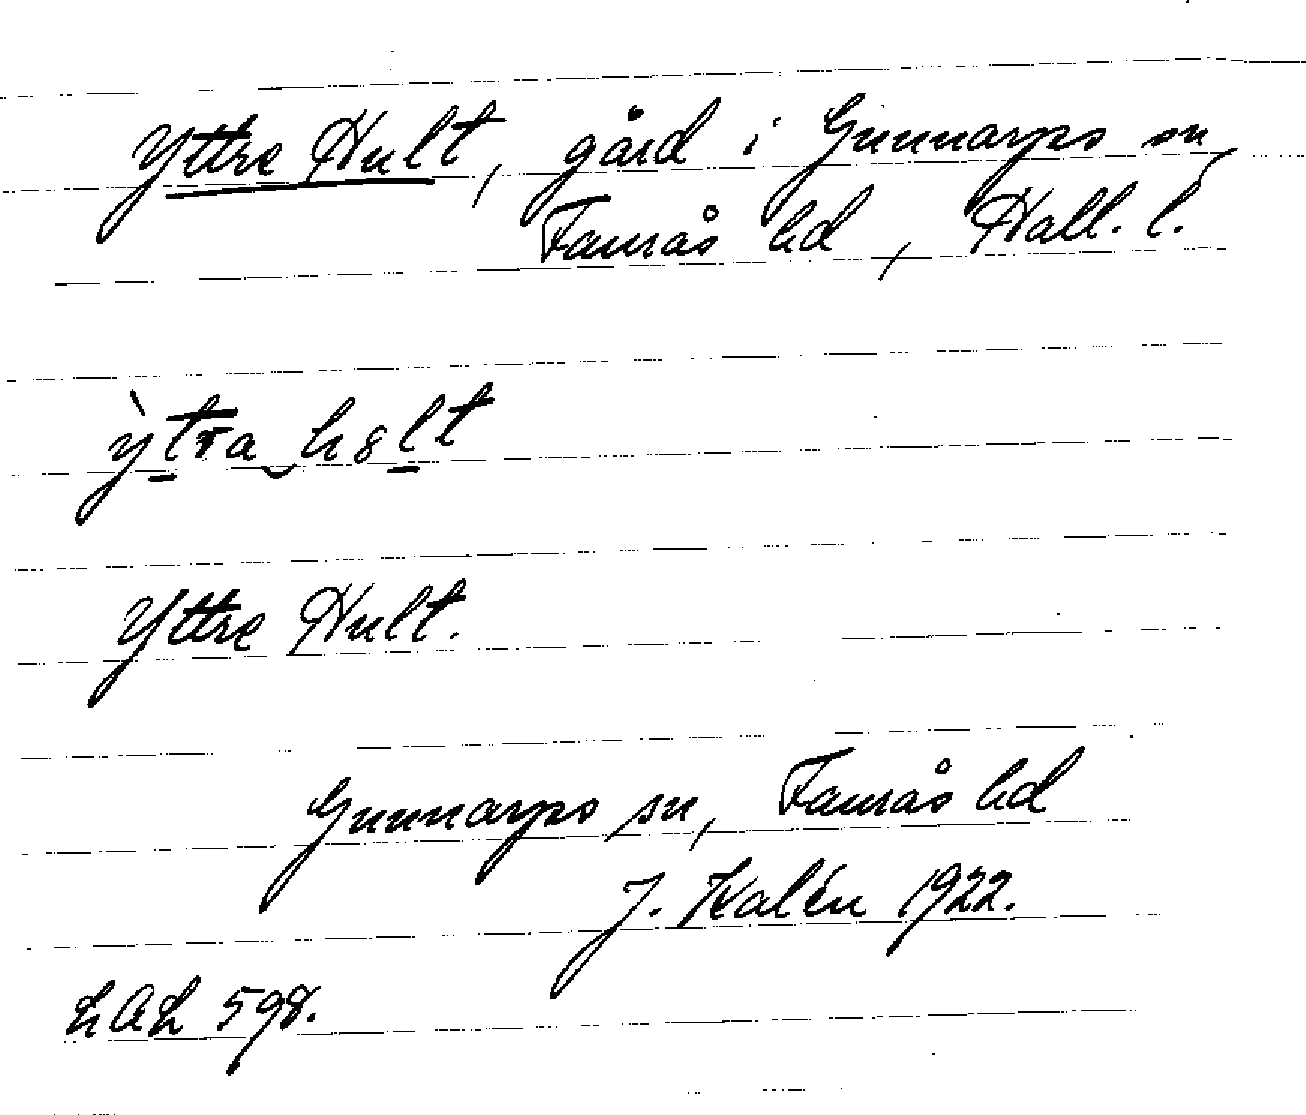 Yttre Hult, gård i Gunnarps sn,
Faurås hd, Hall. l.
ỳtra h8lt
Yttre Hult.
Gunnarps sn, Faurås hd
J. Kalén 1922.
LAL 598.